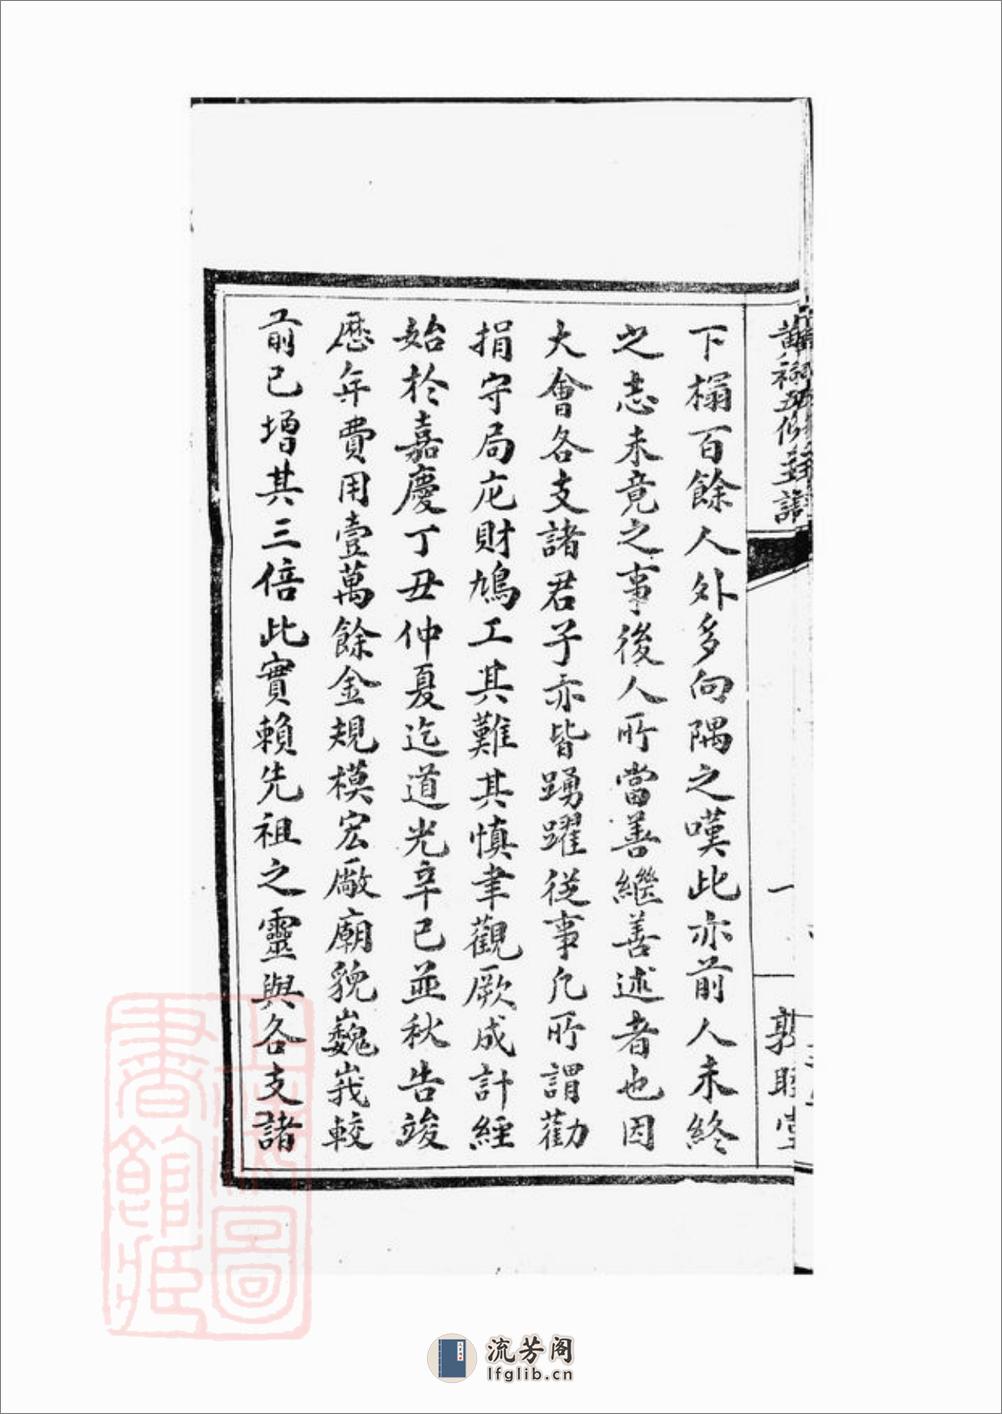 黃祠五修主譜
一
敦睦堂
下榻百餘人外多向隅之嘆此亦前人未終
之志未竟之事後人所當善繼善述者也因
大會各支諸君子亦皆踴躍從事凡所謂勸
捐守局庀財鳩工其難其慎聿觀厥成計經
始於嘉慶丁丑仲夏迄道光辛巳並秋告竣
歷年費用壹萬餘金規模宏厰廟貌巍峩較
前已增其三倍此實賴先祖之靈與各支諸
上海圖書館藏
流芳阁
lfglib.cn